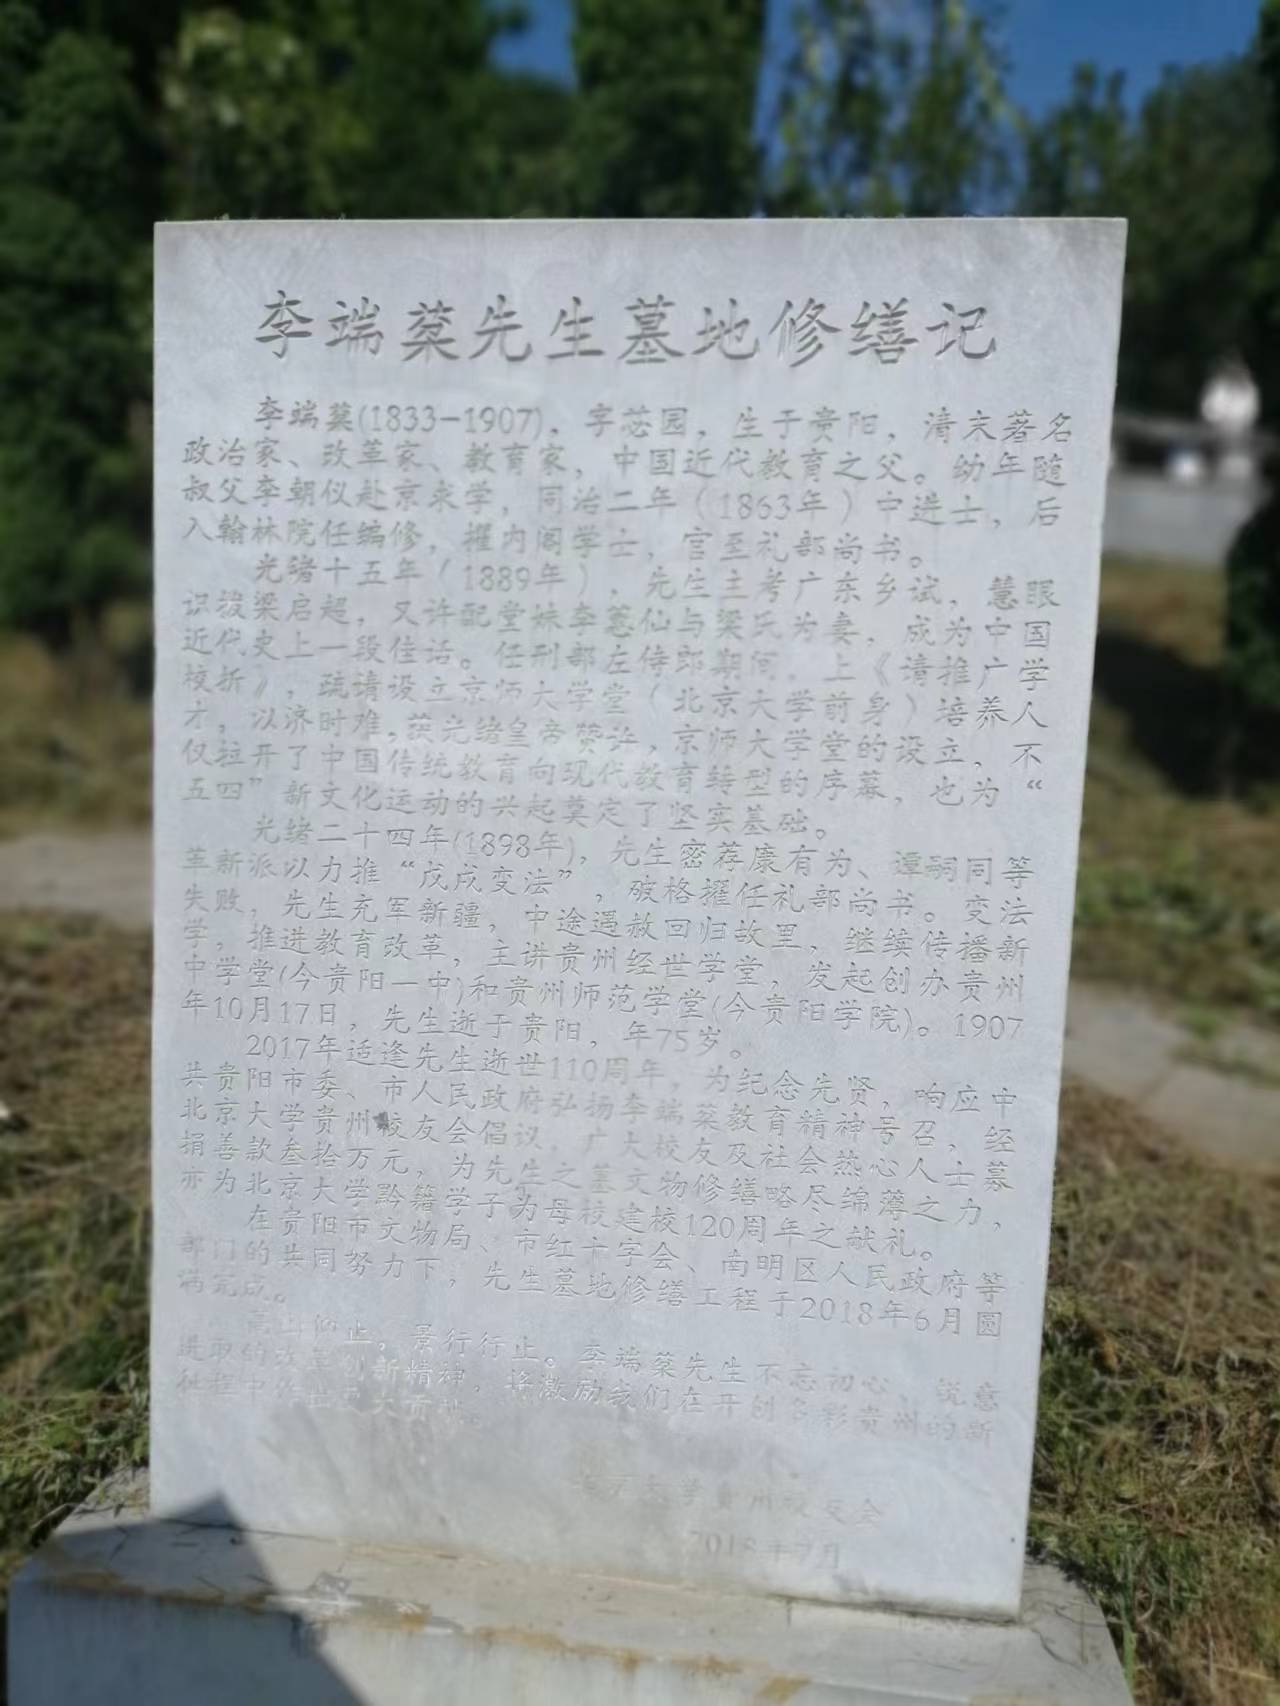 李端棻先生墓地修缮记
李端棻(1833—1907)，字苾园，生于贵阳，清末著名
政治家、改革家、教育家，中国近代教育之父。幼年随
叔父李朝仪赴京求学，同治二年（1863年）中进士，后
入翰林院任编修，擢内阁学士，官至礼部尚书。
光绪十五年（1889年），先生主考广东乡试，慧眼
识拔梁启超，又许配堂妹李蕙仙与梁氏为妻，成为中国
近代史上一段佳话。任刑部左侍郎期间，上《请推广学
校折》，疏请设立京师大学堂（北京大学前身）培养人
才，以济时难，获光绪皇帝赞许，京师大学堂的设立，不
仅拉开了中国传统教育向现代教育转型的序幕，也为“
五四”新文化运动的兴起奠定了坚实基础。
光绪二十四年(1898年)，先生密荐康有为、谭嗣同等
革新派以力推“戊戌变法”，破格擢任礼部尚书。变法
失败，先生充军新疆，中途遇赦回归故里，继续传播新
学，推进教育改革，主讲贵州经世学堂，发起创办贵州
中学堂(今贵阳一中)和贵州师范学堂(今贵阳学院)。1907
年10月17日，先生逝于贵阳，年75岁。
2017年适逢先生逝世110周年，为纪念先贤，响应中
共贵阳市委、市人民政府弘扬李端棻教育精神号召，经
北京大学贵州校友会倡议，广大校友及社会热心人士募
捐善款叁拾万元，为先生之墓文物修缮略尽绵薄之力，
亦为北京大学黔籍学子为母校建校120周年之献礼。
在贵阳市文物局、市红十字会、南明区人民政府等
部门的共同努力下，先生墓地修缮工程于2018年6月圆
满完成。
高山仰止，景行行止。李端棻先生不忘初心，锐意
进取的改革创新精神，将激励我们在开创多彩贵州的新
征程中作出更大贡献。
北京大学贵州校友会
2018年7月